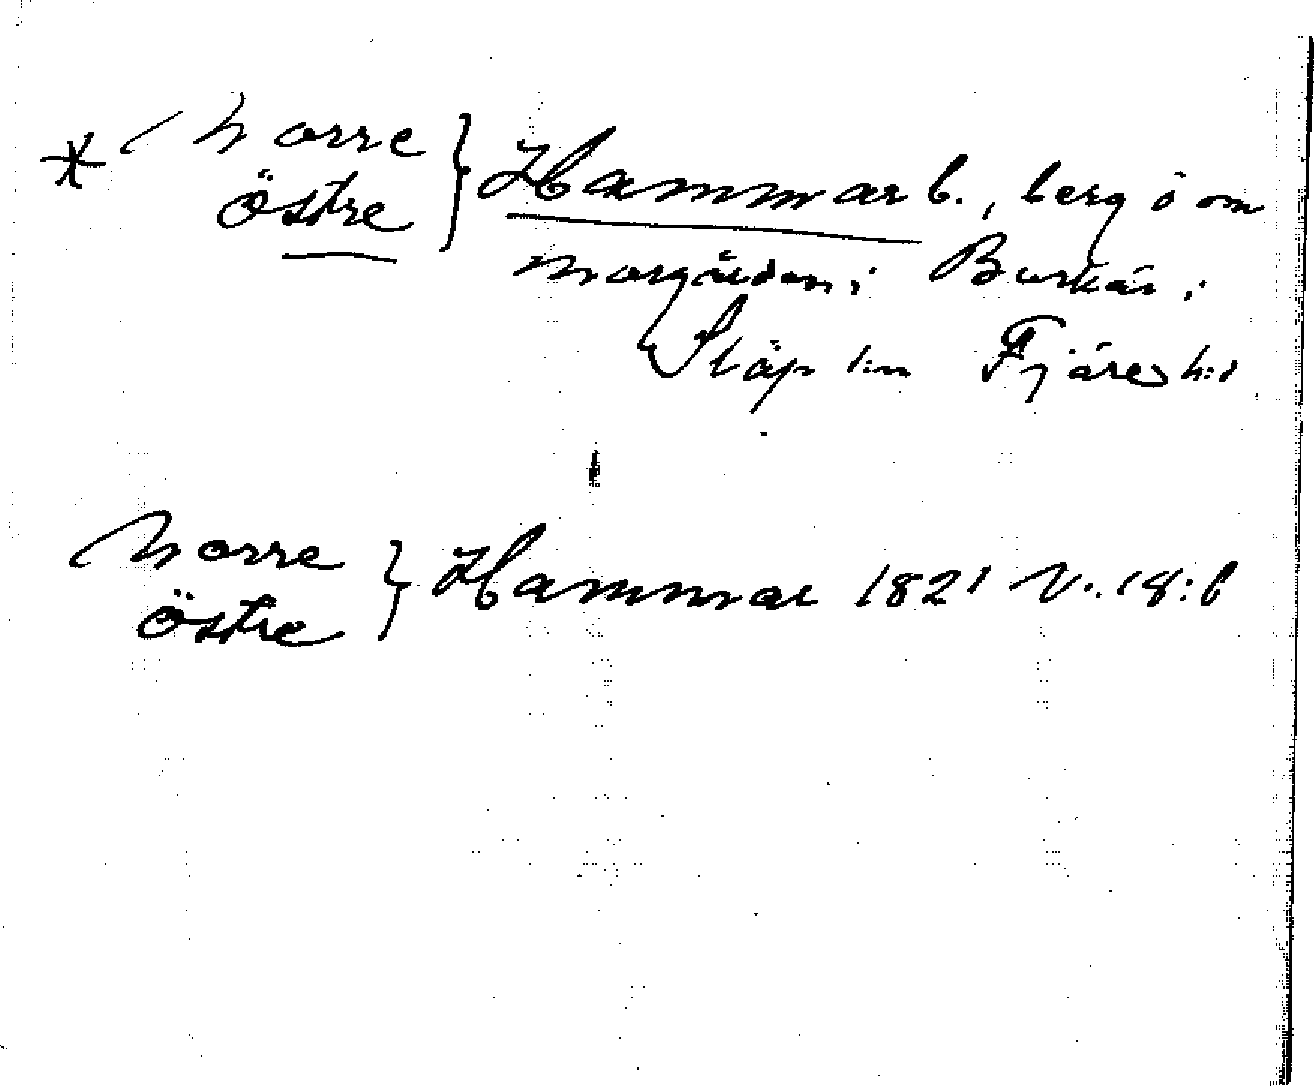 * Norre
Östre } Hammarb., berg ö om
norgården i Burkås i
Släp sn Fjäre hd
Norre
Östre } Hammar 1821 V. 18:6